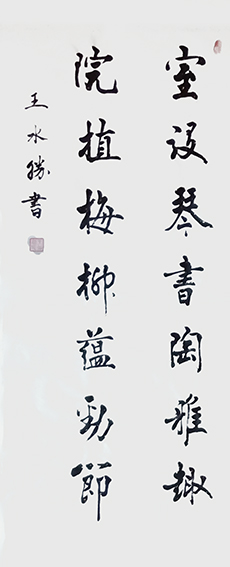 室设琴書陶雅趣
院植梅柳蕴勁節
王水勝書